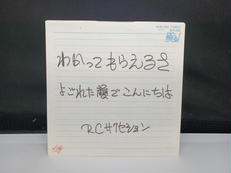 わかってもらえるさ
よごれた顔でこんにちは
RCサクセション